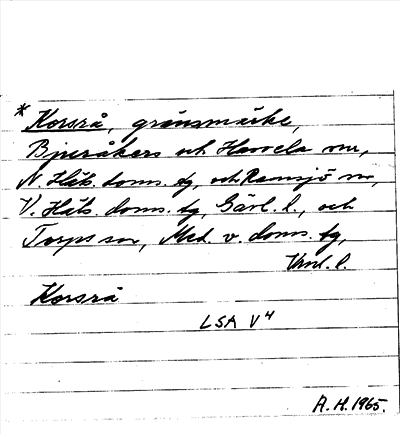 * Korsrå, gränsmärke,
Bjuråkers och Hassela snr,
N. Häls. doms. tg, och Ramsjö sn,
V. Häls. doms. tg, Gävl. l., och
Torps sn, Med. v. doms. tg,
Vnrl. l.
Korsrå
LSA V4
A.H. 1965.